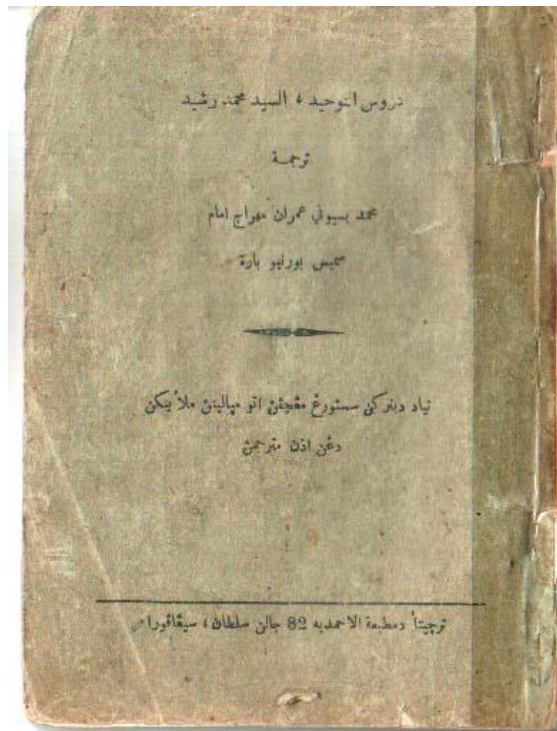 دروس التوحيد، السيد محمد رشيد
ترجمة
محمد بسيوني عمران مهراج امام
سمبس بورنيو بارة
تياد دبنركن سستورڠ مڠچڤن اتو مپالينن ملأينكن
دڠن اذن مترجمن
ترچيتأ دمطبعة الاحمديه 82 جالن سلطان، سيڠاڤورا